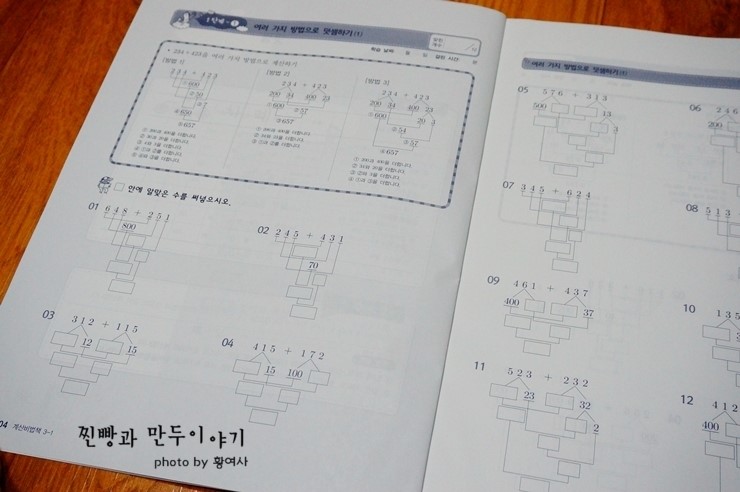 여러 가지 방법으로 덧셈하기 (1)
학습 날짜 월 일 걸린 시간 분
• 234 + 423을 여러 가지 방법으로 계산하기
[방법 1]
234 + 423
①600
②50
③7
④650
⑤657
① 200과 400을 더합니다.
② 30과 20을 더합니다.
③ 4와 3을 더합니다.
④ ①과 ②를 더합니다.
[방법 2]
234 + 423
200 34 400 23
①600
②57
③657
① 200과 400을 더합니다.
② 34와 23을 더합니다.
③ ①과 ②를 더합니다.
[방법 3]
234 + 423
200 34 400 23
①600 20 3
②54
③57
④657
① 200과 400을 더합니다.
② 34와 20을 더합니다.
③ ②와 3을 더합니다.
④ ①과 ③을 더합니다.
□ 안에 알맞은 수를 써넣으시오.
01 648 + 251
800
02 245 + 431
70
03 312 + 115
12 15
04 415 + 172
15 100
04 계산비법책 3-1
여러 가지 방법으로 덧셈하기 (1)
05 576 + 313
500 13
3
06
200
07 345 + 624
08 513
09 461 + 437
400 37
10 135
11 523 + 232
23 32
2
12 412
400
찐빵과 만두이야기
photo by 황여사